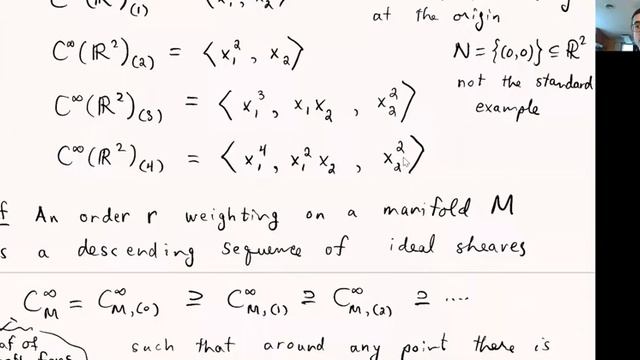 C^∞(ℝ²)_(1)
at the origin
C^∞(ℝ²)_(2) = ⟨x₁², x₂⟩
N = {(0,0)} ⊆ ℝ²
not the standard
example
C^∞(ℝ²)_(3) = ⟨x₁³, x₁x₂, x₂²⟩
C^∞(ℝ²)_(4) = ⟨x₁⁴, x₁²x₂, x₂²⟩
An order r weighting on a manifold M
a descending sequence of ideal sheaves
C^∞_M = C^∞_{M,(0)} ⊇ C^∞_{M,(1)} ⊇ C^∞_{M,(2)} ⊇ ....
such that around any point there is